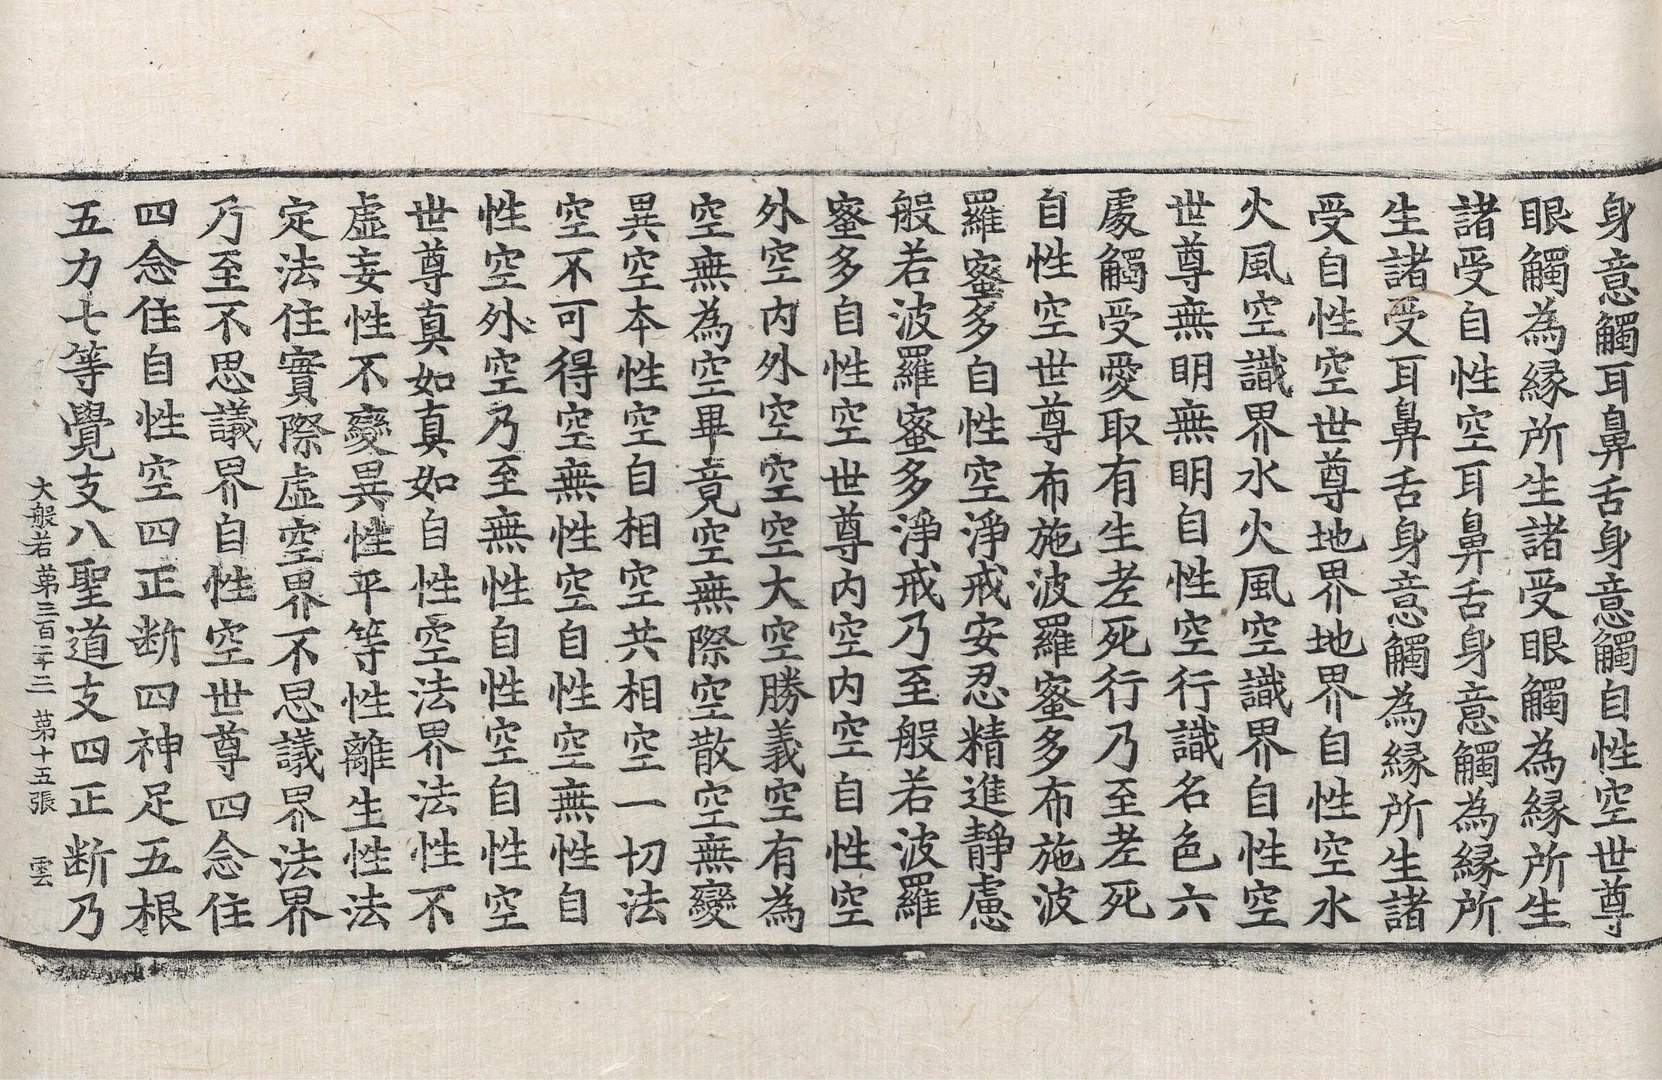 身意觸耳鼻舌身意觸自性空世尊
眼觸為緣所生諸受眼觸為緣所生
諸受自性空耳鼻舌身意觸為緣所
生諸受耳鼻舌身意觸為緣所生諸
受自性空世尊地界地界自性空水
火風空識界水火風空識界自性空
世尊無明無明自性空行識名色六
處觸受愛取有生老死行乃至老死
自性空世尊布施波羅蜜多布施波
羅蜜多自性空淨戒安忍精進靜慮
般若波羅蜜多淨戒乃至般若波羅
蜜多自性空世尊內空內空自性空
外空內外空空空大空勝義空有為
空無為空畢竟空無際空散空無變
異空本性空自相空共相空一切法
空不可得空無性空自性空無性自
性空外空乃至無性自性空自性空
世尊真如真如自性空法界法性不
虛妄性不變異性平等性離生性法
定法住實際虛空界不思議界法界
乃至不思議界自性空世尊四念住
四念住自性空四正断四神足五根
五力七等覺支八聖道支四正断乃
大般若第三百二十二 第十五張 雲